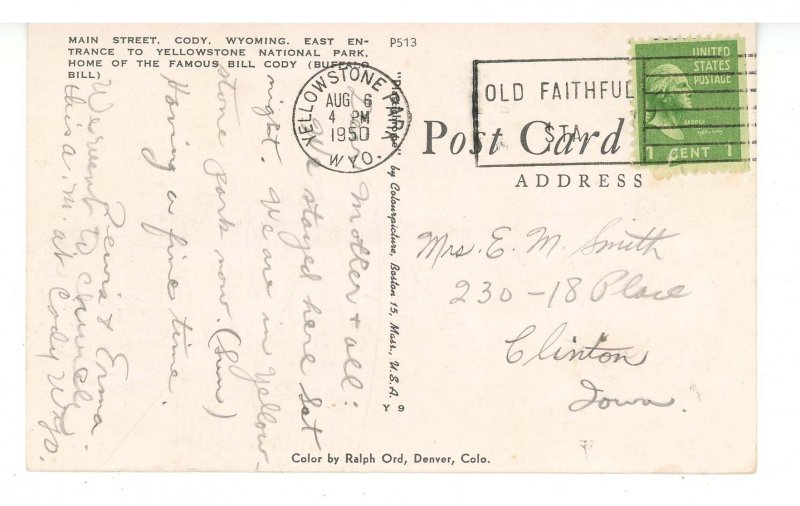 MAIN STREET, CODY, WYOMING. EAST EN-
TRANCE TO YELLOWSTONE NATIONAL PARK.
HOME OF THE FAMOUS BILL CODY (BUFFALO
BILL)
P513
YELLOWSTONE PARK
AUG 6
4 PM
1950
WYO.
OLD FAITHFUL
STA.
UNITED
STATES
POSTAGE
GEORGE
1 CENT 1
Post Card
ADDRESS
Mrs. E. M. Smith
230-18 Place
Clinton
Iowa.
Dear Mother & all:
We stayed here Sat
night. We are in Yellow-
stone Park now. (Sun)
Having a fine time.
Lewis & Erma.
We went to church
this a.m. at Cody Wyo.
"Plastichrome" by Colourpicture, Boston 15, Mass., U.S.A.
Y 9
Color by Ralph Ord, Denver, Colo.